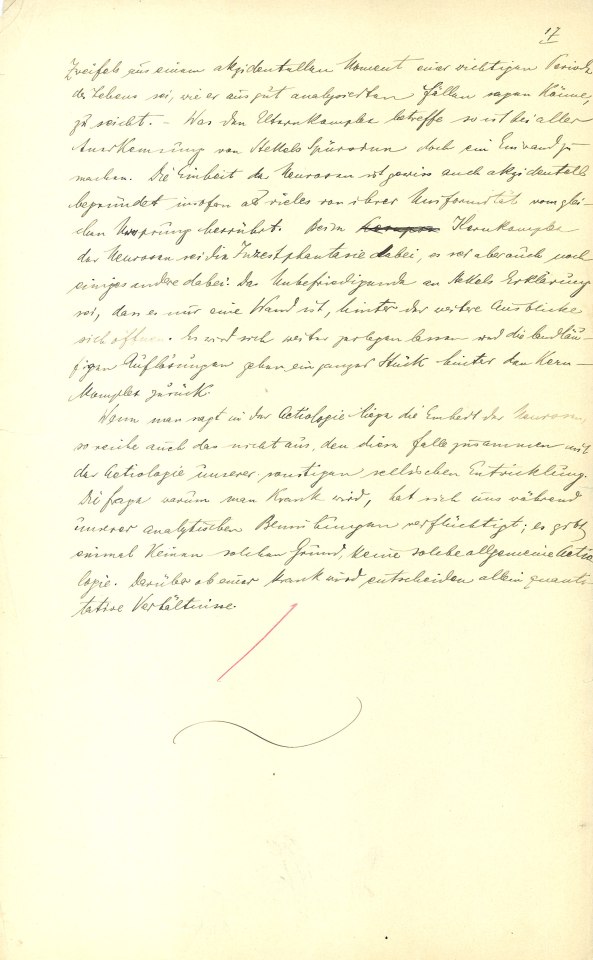 17
Zweifels aus einem akzidentellen Moment einer wichtigen Periode
des Lebens sei, wie er aus gut analysierten Fällen sagen könne,
zu seicht. – Was den Elternkomplex betreffe so ist bei aller
Anerkennung von Stekels Spürsinn doch ein Einwand zu
machen. Die Einheit der Neurosen ist gewiss auch akzidentell
begründet insofern als vieles von ihrer Uniformität vom glei-
chen Ursprung herrührt. Beim Kernkomplex
der Neurosen sei die Inzestphantasie dabei, es sei aber auch noch
einiges andere dabei. Das Unbefriedigende an Stekels Erklärung
sei, dass es nur eine Wand ist, hinter der weitere Ausblicke
sich öffnen. Es wird sich weiter zerlegen lassen und die landläu-
figen Auflösungen geben ein ganzes Stück hinter den Kern-
komplex zurück.
Wenn man sagt in der Aetiologie liege die Einheit der Neurosen,
so reiche auch das nicht aus, denn diese falle zusammen mit
der Aetiologie unserer sonstigen seelischen Entwicklung.
Die Frage warum man krank wird, hat sich uns während
unserer analytischen Bemühungen verflüchtigt; es gibt
einmal keinen solchen Grund, keine solche allgemeine Aetio
logie. Darüber ob einer krank wird entscheiden allein quanti-
tative Verhältnisse.